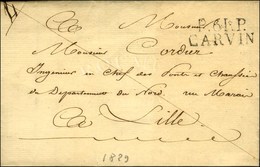 A Monsieur
P.61.P.
CARVIN
Monsieur Cordier
Ingenieur en Chef des Ponts et Chaussées
du Departement du Nord, rue Marais
A Lille
1829